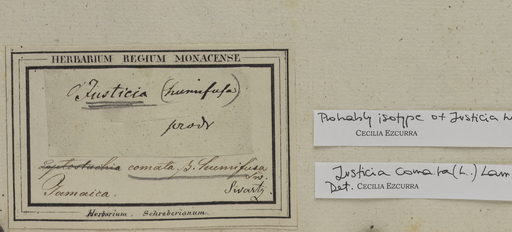 HERBARIUM REGIUM MONACENSE
Justicia (humifusa)
prodr
Leptostachia comata. β. humifusa
Sw.
Jamaica. Swartz.
Herbarium Schreberianum.
Probably isotype of Justicia
CECILIA EZCURRA
Justicia comata (L.) Lam
Det. CECILIA EZCURRA